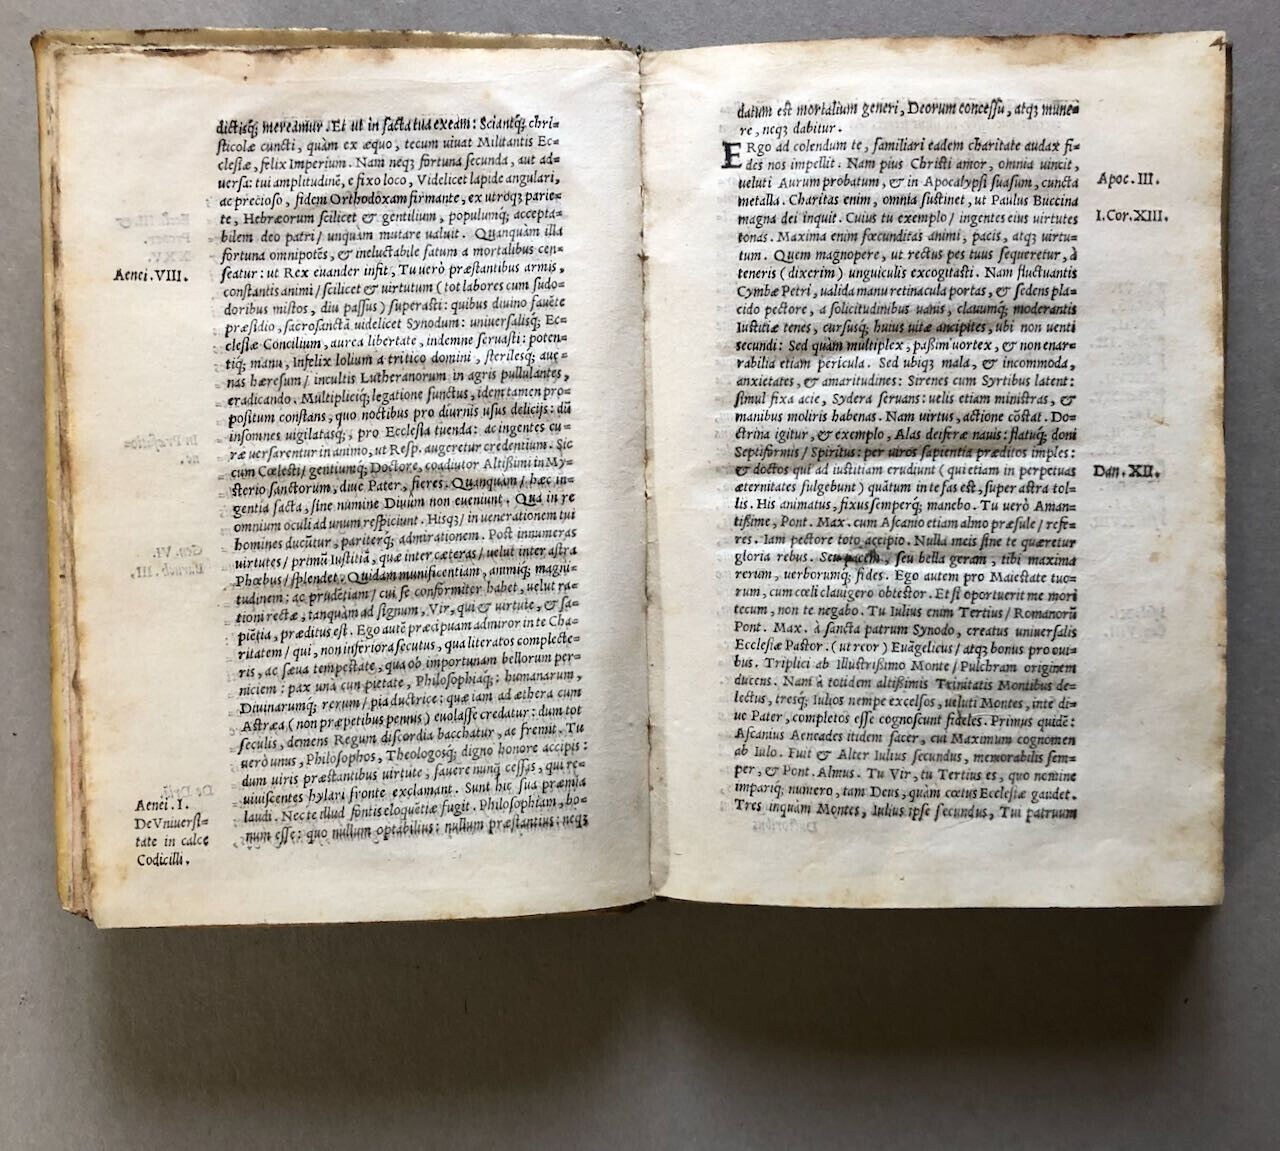 dictisq; mereamur. Et ut in facta tua exeam: Sciantq; chri-
sticolæ cuncti, quàm ex æquo, tecum uiuat Militantis Ec-
clesiæ, felix Imperium. Nam neq; fortuna secunda, aut ad-
uersa: tui amplitudinē, e fixo loco, Videlicet lapide angulari,
ac precioso, fidem Orthodoxam firmante, ex utroq; parie-
te, Hebræorum scilicet & gentilium, populumq; accepta-
bilem deo patri/ unquàm mutare ualuit. Quanquàm illa
fortuna omnipotēs, & ineluctabile fatum a mortalibus cen-
Aenei. VIII.
seatur: ut Rex euander infit, Tu uerò præstantibus armis,
constantis animi/ scilicet & uirtutum (tot labores cum sudo-
doribus mistos, diu passus) superasti: quibus diuino fauēte
præsidio, sacrosanctā uidelicet Synodum: uniuersalisq; Ec-
clesiæ Concilium, aurea libertate, indemne seruasti: poten-
tiq; manu, Infelix lolium a tritico domini, sterilesq; aue-
nas hæresum/ incultis Lutheranorum in agris pullulantes,
eradicando. Multipliciq; legatione functus, idem tamen pro-
positum constans, quo noctibus pro diurnis usus delicijs: dū
insomnes uigilatasq;, pro Ecclesia tuenda: ac ingentes cu-
ræ uersarentur in animo, ut Resp. augeretur credentium. Sic
cum Cœlesti/ gentiumq; Doctore, coadiutor Altissimi in My-
sterio sanctorum, diue Pater, fieres. Quanquam/ hæc in-
gentia facta, sine numine Diuùm non eueniunt. Qua in re
omnium oculi ad unum respiciunt. Hisq;/ in uenerationem tui
homines ducūtur, pariterq; admirationem. Post innumeras
uirtutes/ primū Iustitiā, quæ inter cæteras/ uelut inter astra
Phœbus/ splendet. Quidam munificentiam, animiq; magni-
tudinem: ac prudētiam/ cui se conformiter habet, uelut ra-
tioni rectæ, tanquàm ad signum, Vir, qui & uirtute, & sa-
piētia, præditus est. Ego autē præcipuam admiror in te Cha-
ritatem/ qui, non inferiora secutus, qua literatos complecte-
ris, ac sæua tempestate, qua ob importunam bellorum per-
niciem: pax una cun pietate, Philosophiaq;: humanarum,
Diuinarumq; rerum/ pia ductrice: quæ iam ad æthera cum
Astræa (non præpetibus pennis) euolasse credatur: dum tot
seculis, demens Regum discordia bacchatur, ac fremit. Tu
uerò unus, Philosophos, Theologosq; digno honore accipis:
dum uiris præstantibus uirtute, fauere nunq̄ cessas, qui re-
Aenei. I.
uiuiscentes hylari fronte exclamant. Sunt hic sua præmia
De Vniuersi-
laudi. Nec te illud fontis eloquētiæ fugit. Philosophiam, bo-
tate in calce
num esse: quo nullum optabilius: nullum præstantius: neq;
Codicilli.
4
datum est mortalium generi, Deorum concessu, atq; mune-
re, neq; dabitur.
ERgo ad colendum te, familiari eadem charitate audax fi-
des nos impellit. Nam pius Christi amor, omnia uincit,
Apoc. III.
ueluti Aurum probatum, & in Apocalypsi suasum, cuncta
metalla. Charitas enim, omnia sustinet, ut Paulus Buccina
I. Cor. XIII.
magna dei inquit. Cuius tu exemplo/ ingentes eius uirtutes
tonas. Maxima enim fœcunditas animi, pacis, atq; uirtu-
tum. Quem magnopere, ut rectus pes tuus sequeretur, à
teneris (dixerim) unguiculis excogitasti. Nam fluctuantis
Cymbæ Petri, ualida manu retinacula portas, & sedens pla-
cido pectore, a solicitudinibus uanis, clauumq; moderantis
Iustitiæ tenes, cursusq; huius uitæ ancipites, ubi non uenti
secundi: Sed quàm multiplex, passim uortex, & non enar-
rabilia etiam pericula. Sed ubiq; mala, & incommoda,
anxietates, & amaritudines: Sirenes cum Syrtibus latent:
simul fixa acie, Sydera seruans: uelis etiam ministras, &
manibus moliris habenas. Nam uirtus, actione cōstat. Do-
ctrina igitur, & exemplo, Alas deiferæ nauis: flatuq; doni
Septiformis/ Spiritus: per uiros sapientia præditos imples:
Dan. XII.
& doctos qui ad iustitiam erudiunt (qui etiam in perpetuas
æternitates fulgebunt) quātum in te fas est, super astra tol-
lis. His animatus, fixus semperq; manebo. Tu uerò Aman-
tissime, Pont. Max. cum Ascanio etiam almo præsule/ refe-
res. Iam pectore toto accipio. Nulla meis sine te quæretur
gloria rebus. Seu pacem, seu bella geram, tibi maxima
rerum, uerborumq; fides. Ego autem pro Maiestate tuo-
rum, cum cœli clauigero obtestor. Et si oportuerit me mori
tecum, non te negabo. Tu Iulius enim Tertius/ Romanorū
Pont. Max. à sancta patrum Synodo, creatus uniuersalis
Ecclesiæ Pastor. (ut reor) Euāgelicus/ atq; bonus pro oui-
bus. Triplici ab Illustrissimo Monte/ Pulchram originem
ducens. Nam à totidem altissimis Trinitatis Montibus de-
lectus, tresq; Iulios nempe excelsos, ueluti Montes, in te di-
ue Pater, completos esse cognoscunt fideles. Primus quidē:
Ascanius Aeneades itidem sacer, cui Maximum cognomen
ab Iulo. Fuit & Alter Iulius secundus, memorabilis sem-
per, & Pont. Almus. Tu Vir, tu Tertius es, quo nomine
impariq; numero, tam Deus, quàm cœtus Ecclesiæ gaudet.
Tres inquàm Montes, Iulius ipse secundus, Tui patruum